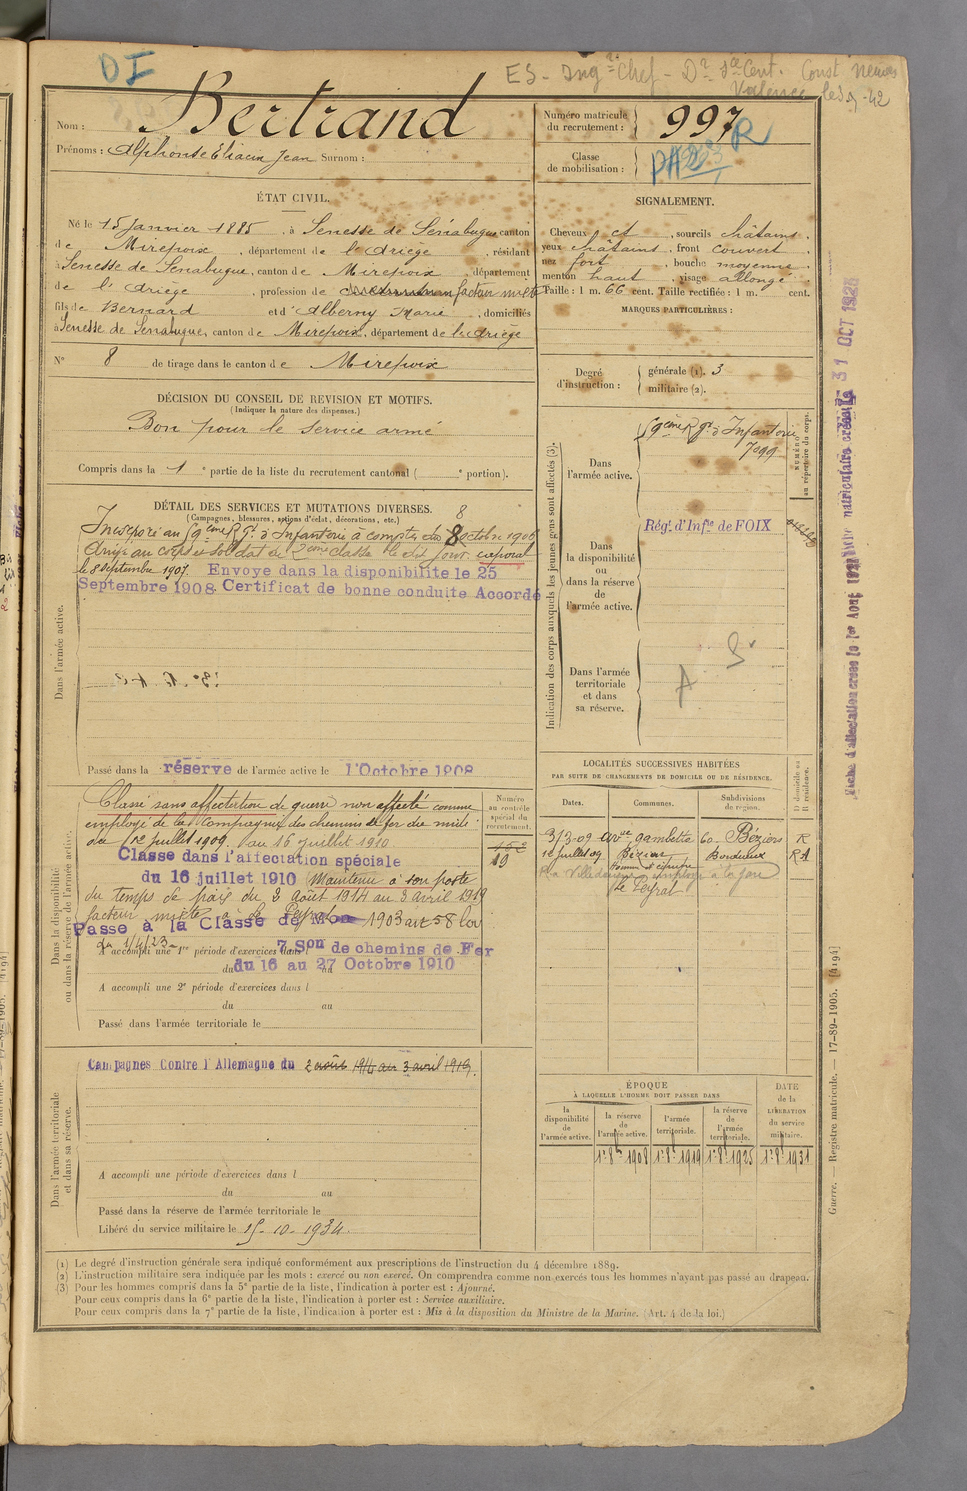 DI
ES - Ingr Chef - Dr Sce Cent. Const Neuves
Valence le 3-9-42
Nom : Bertrand
Prénoms : Alphonse Eliacin Jean Surnom :
Numéro matricule du recrutement : 997 R
Classe de mobilisation :
ÉTAT CIVIL.
Né le 15 Janvier 1885, à Senesse de Sénabugue canton
de Mirepoix, département de l'Ariège, résidant
Senesse de Senabugue, canton de Mirepoix, département
de l'Ariège, profession de facteur mixte
fils de Bernard et d'Alberny Marie, domiciliés
à Senesse de Senabugue, canton de Mirepoix, département de l'Ariège
N° 8 de tirage dans le canton de Mirepoix
DÉCISION DU CONSEIL DE REVISION ET MOTIFS.
(Indiquer la nature des dispenses.)
Bon pour le Service armé
Compris dans la 1e partie de la liste du recrutement cantonal ( e portion).
SIGNALEMENT.
Cheveux et, sourcils châtains,
yeux châtains, front couvert,
nez fort, bouche moyenne,
menton haut, visage allongé.
Taille : 1 m. 66 cent. Taille rectifiée : 1 m. cent.
MARQUES PARTICULIÈRES :
Degré d'instruction :
générale (1). 3
militaire (2).
DÉTAIL DES SERVICES ET MUTATIONS DIVERSES.
(Campagnes, blessures, actions d'éclat, décorations, etc.)
8
Dans l'armée active.
Incorporé au 59eme Rgt d'Infanterie à compter du 8 octobre 1906
Arrivé au corps et soldat de 2eme classe le dit jour. caporal
le 8 septembre 1907. Envoyé dans la disponibilité le 25
Septembre 1908. Certificat de bonne conduite Accordé
Passé dans la réserve de l'armée active le 1' Octobre 1908
Indication des corps auxquels les jeunes gens sont affectés (3).
Dans l'armée active.
59eme Rgt d'Infanterie
7099
NUMÉRO au répertoire du corps.
Dans la disponibilité ou dans la réserve de l'armée active.
Régt. d'Infie de FOIX
Dans l'armée territoriale et dans sa réserve.
A
Dans la disponibilité ou dans la réserve de l'armée active.
Numéro au contrôle spécial du recrutement.
Classé sans affectation de guerre non affecté comme
employé de la Compagnie des chemins de fer du midi
du 1er Juillet 1909 au 16 juillet 1910
Classé dans l'affectation spéciale
du 16 juillet 1910 Maintenu à son poste
du temps de paix du 2 Août 1914 au 3 avril 1919
facteur mixte à le Peyrat
Passé à la Classe de Mon 1903 art 58 loi
du 1/4/23
A accompli une 1re période d'exercices dans l 7 Son de chemins de Fer
du du 16 au 27 Octobre 1910
A accompli une 2e période d'exercices dans l
du au
Passé dans l'armée territoriale le
LOCALITÉS SUCCESSIVES HABITÉES
PAR SUITE DE CHANGEMENTS DE DOMICILE OU DE RÉSIDENCE.
Dates. Communes. Subdivisions de région. D domicile ou R résidence.
3/3-09 avue gambetta 60 Béziers R
16 Juillet 09 Béziers Bordeaux
le Peyrat
Dans l'armée territoriale et dans sa réserve.
Campagnes Contre l'Allemagne du 2 août 1914 au 3 avril 1919.
A accompli une période d'exercices dans l
du au
Passé dans la réserve de l'armée territoriale le
Libéré du service militaire le 15-10-1934
ÉPOQUE
À LAQUELLE L'HOMME DOIT PASSER DANS
la disponibilité de l'armée active.
la réserve de l'armée active.
l'armée territoriale.
la réserve de l'armée territoriale.
DATE de la LIBÉRATION du service militaire.
1er 8bre 1908 1er 8bre 1919 1er 8bre 1925 1er 8bre 1931
(1) Le degré d'instruction générale sera indiqué conformément aux prescriptions de l'instruction du 4 décembre 1889.
(2) L'instruction militaire sera indiquée par les mots : exercé ou non exercé. On comprendra comme non exercés tous les hommes n'ayant pas passé au drapeau.
(3) Pour les hommes compris dans la 5e partie de la liste, l'indication à porter est : Ajourné.
Pour ceux compris dans la 6e partie de la liste, l'indication à porter est : Service auxiliaire.
Pour ceux compris dans la 7e partie de la liste, l'indication à porter est : Mis à la disposition du Ministre de la Marine. (Art. 4 de la loi.)
Guerre. — Registre matricule. — 17-89-1905. [4194]
matriculaire créée le 31 OCT 1928
Fiche d'affectation créée le 1er Août